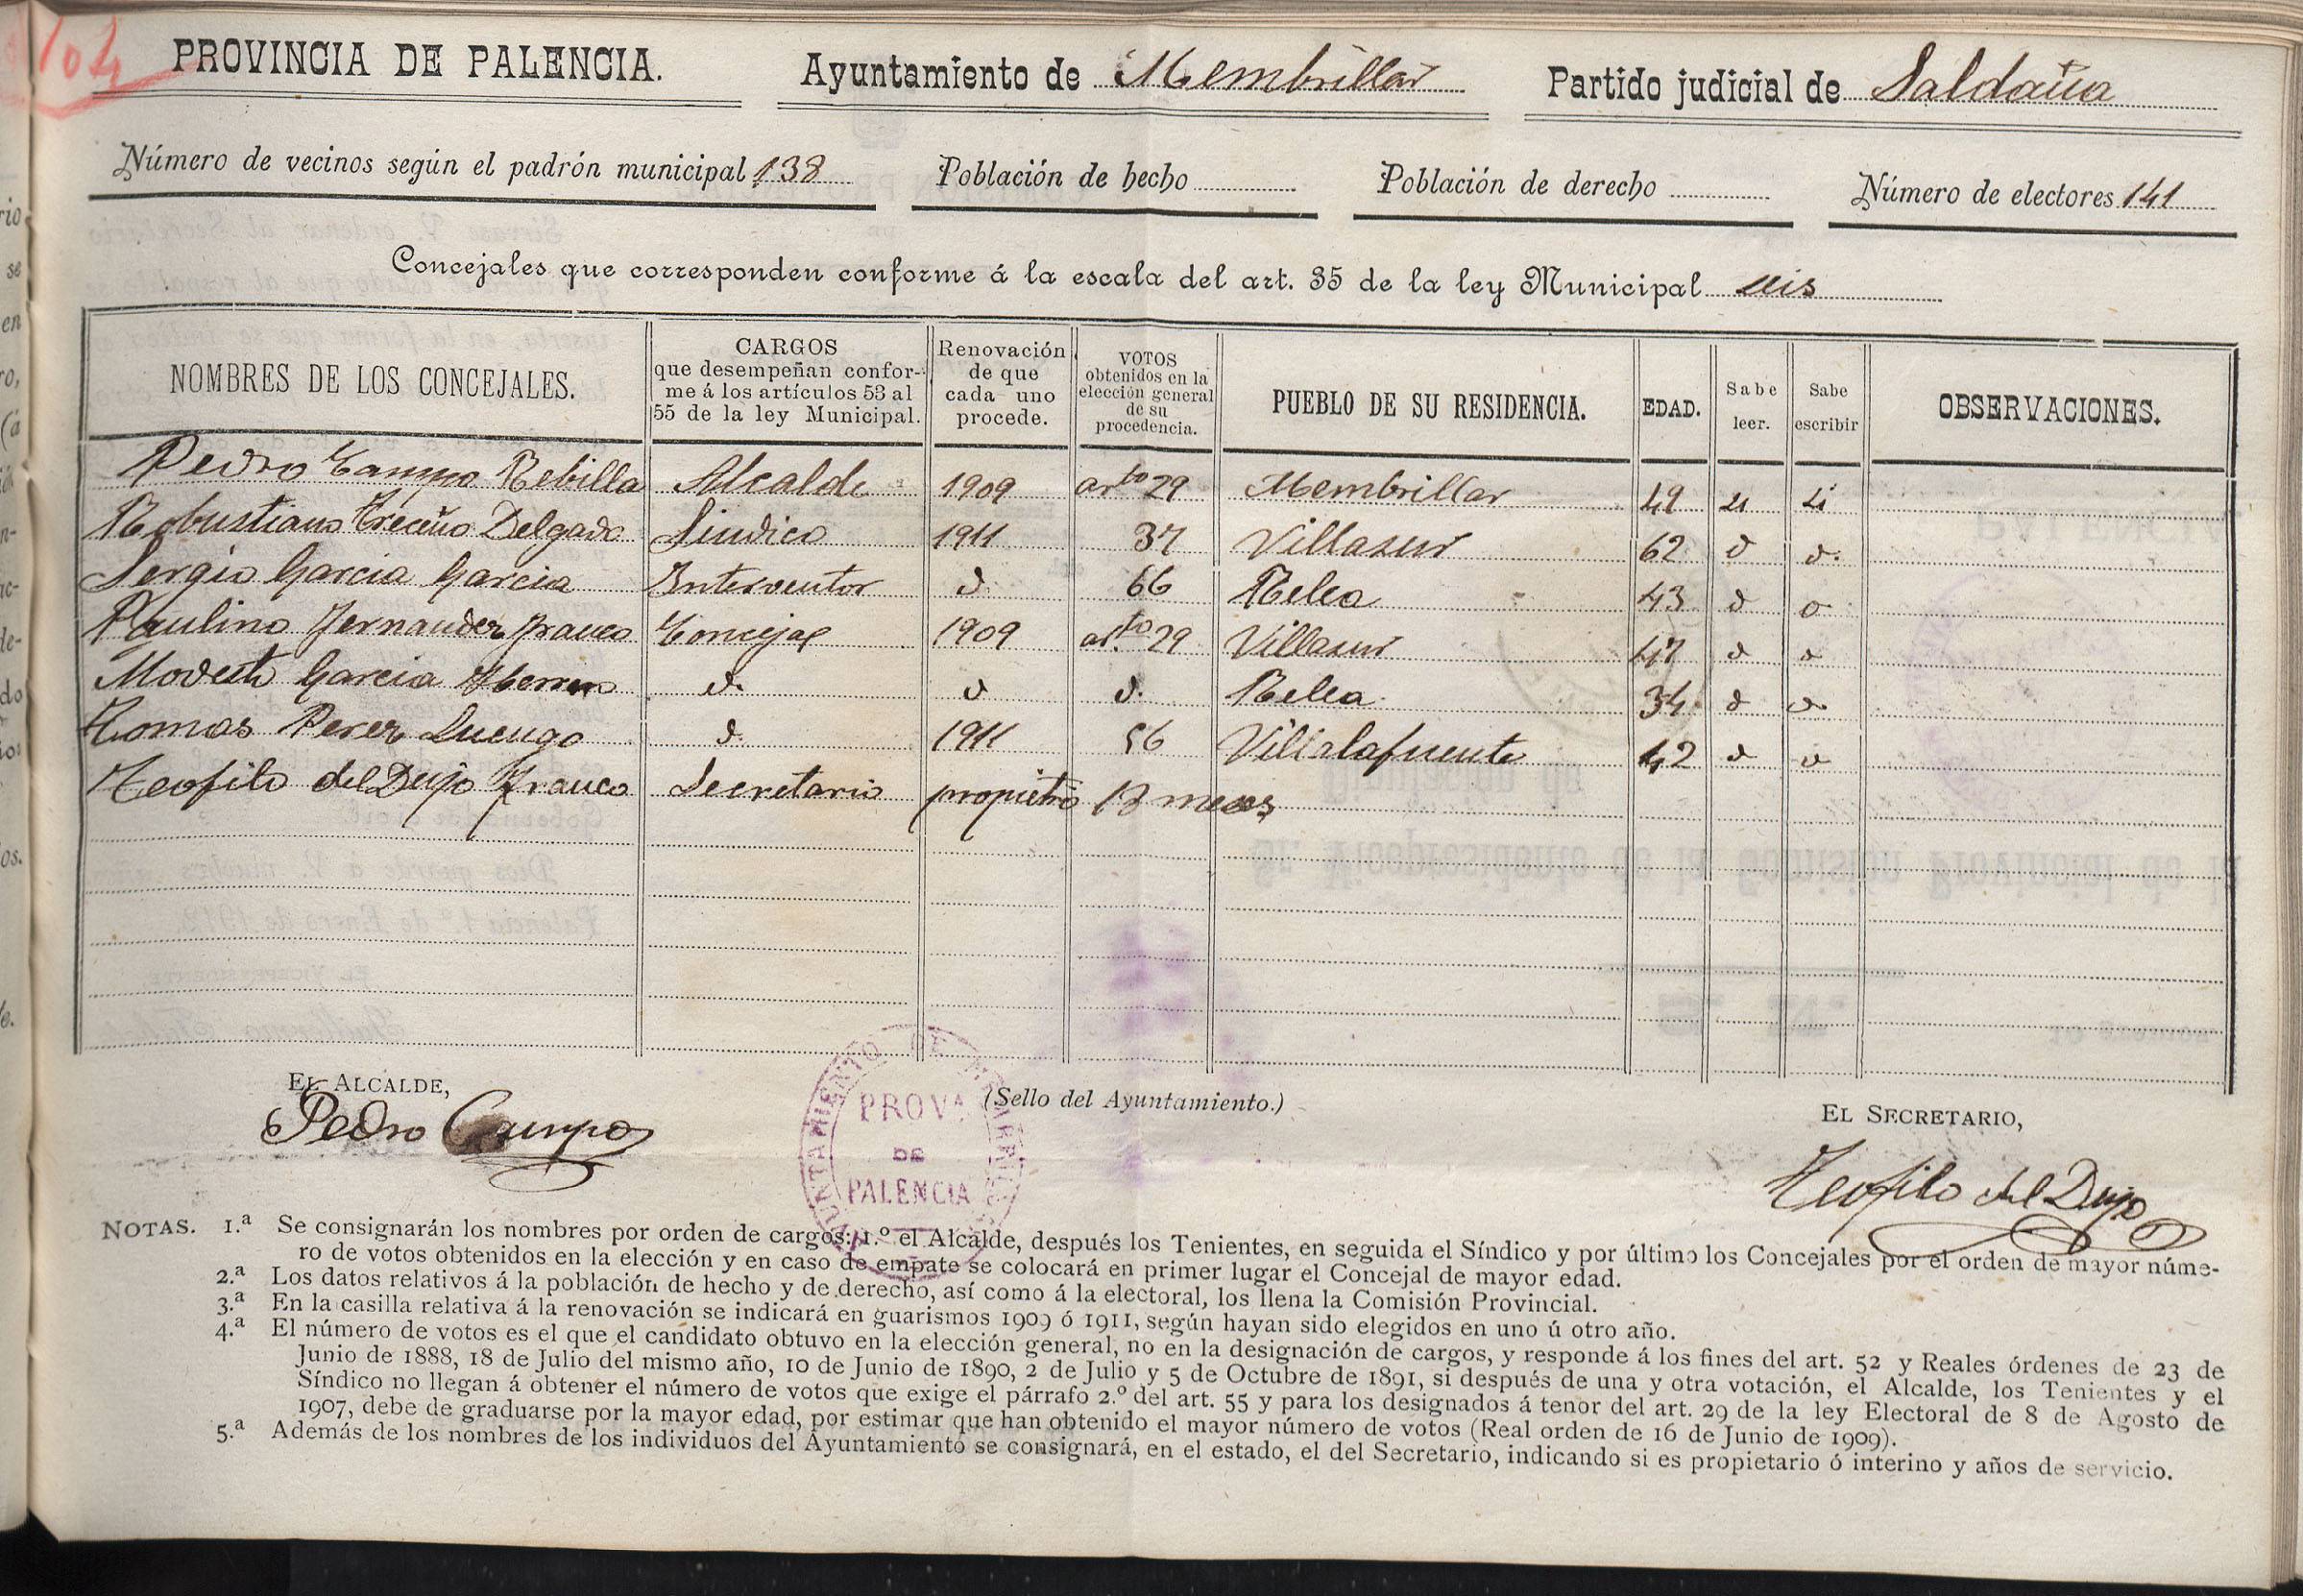 104
PROVINCIA DE PALENCIA. Ayuntamiento de Membrillar Partido judicial de Saldaña
Número de vecinos según el padrón municipal 138 Población de hecho Población de derecho Número de electores 141
Concejales que corresponden conforme á la escala del art. 35 de la ley Municipal seis
NOMBRES DE LOS CONCEJALES. CARGOS que desempeñan conforme á los artículos 53 al 55 de la ley Municipal. Renovación de que cada uno procede. VOTOS obtenidos en la elección general de su procedencia. PUEBLO DE SU RESIDENCIA. EDAD. Sabe leer. Sabe escribir OBSERVACIONES.
Pedro Campo Rebilla Alcalde 1909 arto 29 Membrillar 49 si si
Robustiano Treceño Delgado Sindico 1911 37 Villasur 62 d d.
Sergio Garcia Garcia Interventor d. 66 Relea 43 d
Paulino Fernandez Franco Concejal 1909 art.to 29 Villasur 47 d d
Modesto Garcia Herrero d. d d. Relea 34 d d.
Tomas Perez Luengo d. 1911 56 Villalafuente 42 d d
Teofilo del Dujo Franco Secretario propietrio 13 meses
EL ALCALDE,
Pedro Campo
(Sello del Ayuntamiento.)
AYUNTAMIENTO DE MEMBRILLAR
PROVA
DE
PALENCIA
EL SECRETARIO,
Teofilo del Dujo
NOTAS. 1.ª Se consignarán los nombres por orden de cargos: 1.º el Alcalde, después los Tenientes, en seguida el Síndico y por último los Concejales por el orden de mayor núme-
ro de votos obtenidos en la elección y en caso de empate se colocará en primer lugar el Concejal de mayor edad.
2.ª Los datos relativos á la población de hecho y de derecho, así como á la electoral, los llena la Comisión Provincial.
3.ª En la casilla relativa á la renovación se indicará en guarismos 1909 ó 1911, según hayan sido elegidos en uno ú otro año.
4.ª El número de votos es el que el candidato obtuvo en la elección general, no en la designación de cargos, y responde á los fines del art. 52 y Reales órdenes de 23 de
Junio de 1888, 18 de Julio del mismo año, 10 de Junio de 1890, 2 de Julio y 5 de Octubre de 1891, si después de una y otra votación, el Alcalde, los Tenientes y el
Síndico no llegan á obtener el número de votos que exige el párrafo 2.º del art. 55 y para los designados á tenor del art. 29 de la ley Electoral de 8 de Agosto de
1907, debe de graduarse por la mayor edad, por estimar que han obtenido el mayor número de votos (Real orden de 16 de Junio de 1909).
5.ª Además de los nombres de los individuos del Ayuntamiento se consignará, en el estado, el del Secretario, indicando si es propietario ó interino y años de servicio.